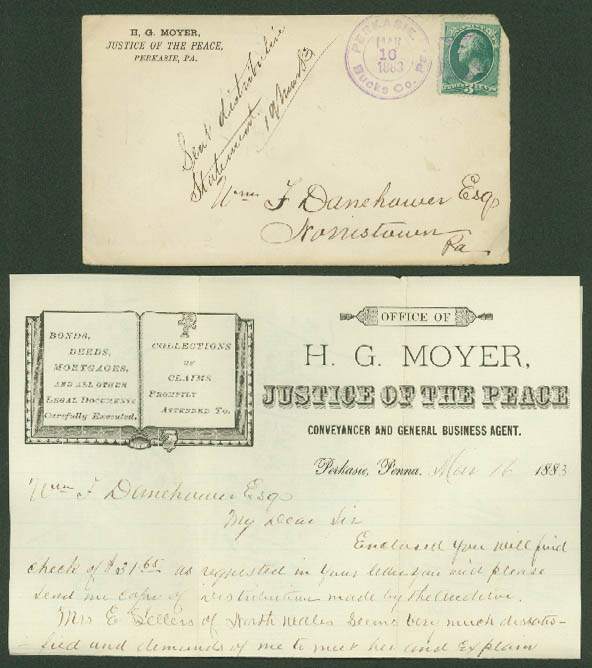 H. G. MOYER,
JUSTICE OF THE PEACE,
PERKASIE, PA.
PERKASIE.
MAR
16
1883
Bucks Co. Pa.
Sent distributive
Statement
19 Mar 83
Wm F Danehower Esq
Norristown
Pa
BONDS,
DEEDS,
MORTGAGES,
AND ALL OTHER
LEGAL DOCUMENTS
Carefully Executed.
COLLECTIONS
OF
CLAIMS
PROMPTLY
ATTENDED TO.
OFFICE OF
H. G. MOYER,
JUSTICE OF THE PEACE
CONVEYANCER AND GENERAL BUSINESS AGENT.
Perkasie, Penna. Mar 16 1883
Wm F Danehower Esq
My Dear Sir
Enclosed you will find
check of $31 65 as requested in your letter you will please
send me copy of distribution made by the Auditor.
Mrs E Sellers of North Wales seems very much dissatis-
fied and demands of me to meet her and explain